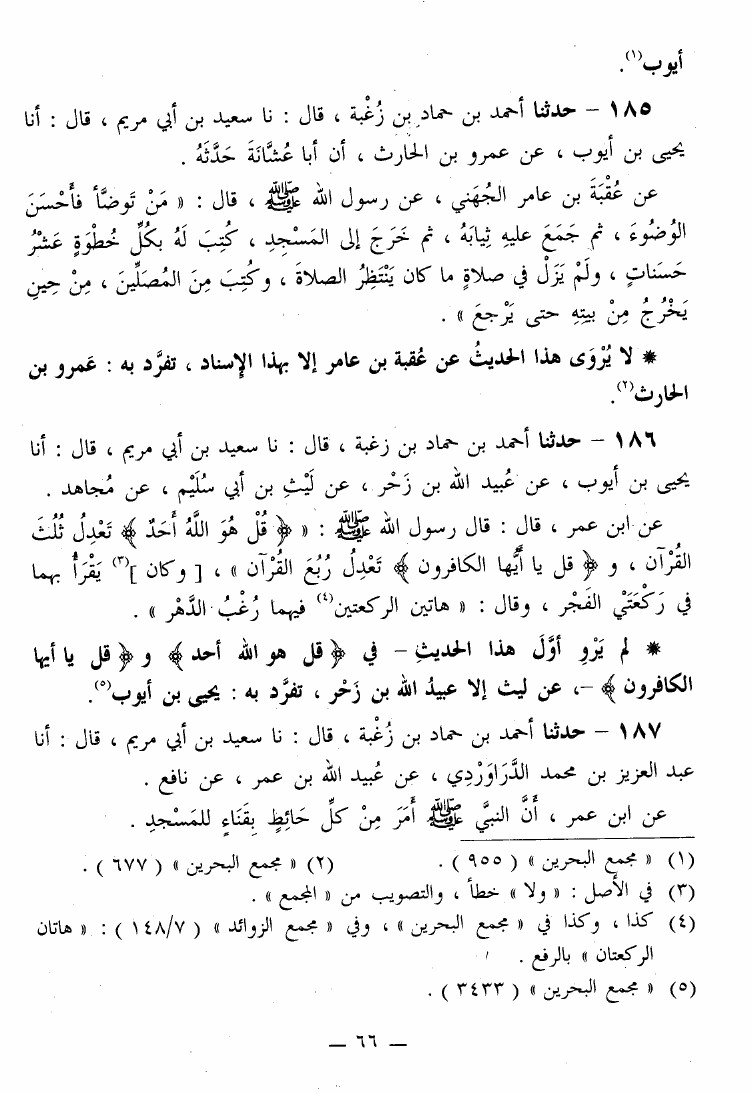 أيوب(١).
١٨٥ – حدثنا أحمد بن حماد بن زُغْبة ، قال : نا سعيد بن أبي مريم ، قال : أنا
يحيى بن أيوب ، عن عمرو بن الحارث ، أن أبا عُشَّانَةَ حَدَّثَهُ .
عن عُقْبَةَ بن عامر الجُهَني ، عن رسول الله ﷺ ، قال : « مَنْ تَوضَّأ فأَحْسَنَ
الوُضُوءَ ، ثم جَمَعَ عليهِ ثِيابَهُ ، ثم خَرَجَ إلى المَسْجِدِ ، كُتِبَ لَهُ بِكُلِّ خُطْوَةٍ عَشْرُ
حَسَناتٍ ، ولَمْ يَزَلْ في صلاةٍ ما كان يَنْتَظِرُ الصلاةَ ، وكُتِبَ مِنَ المُصَلِّينَ ، مِنْ حِينِ
يَخْرُجُ مِنْ بيتِهِ حتى يَرْجعَ » .
* لا يُرْوَى هذا الحديثُ عن عُقبة بن عامر إلا بهذا الإسناد ، تفرَّد به : عَمرو بن
الحارث(٢).
١٨٦ – حدثنا أحمد بن حماد بن زغبة ، قال : نا سعيد بن أبي مريم ، قال : أنا
يحيى بن أيوب ، عن عُبيد الله بن زَحْر ، عن لَيْثِ بن أبي سُلَيْم ، عن مُجاهد .
عن ابن عمر ، قال : قال رسول الله ﷺ : « ﴿ قُلْ هُوَ اللَّهُ أَحَدٌ ﴾ تَعْدِلُ ثُلُثَ
القُرْآن ، و ﴿ قل يا أَيُّها الكافرون ﴾ تَعْدِلُ رُبُعَ القُرْآن » ، [ وكان ](٣) يَقْرَأُ بهما
في رَكْعَتَيْ الفَجْر ، وقال : « هاتين الركعتين(٤) فيهما رُغْبُ الدَّهْر » .
* لم يَرْوِ أوَّلَ هذا الحديثِ – في ﴿ قل هو الله أحد ﴾ و ﴿ قل يا أيها
الكافرون ﴾ –، عن ليث إلا عبيدُ الله بن زَحْر ، تفرَّد به : يحيى بن أيوب(٥).
١٨٧ – حدثنا أحمد بن حماد بن زُغْبة ، قال : نا سعيد بن أبي مريم ، قال : أنا
عبد العزيز بن محمد الدَّرَاوَرْدِي ، عن عُبيد الله بن عمر ، عن نافع .
عن ابن عمر ، أَنَّ النبيَّ ﷺ أَمَرَ مِنْ كلِّ حَائِطٍ بِقَنَاءٍ للمَسْجدِ .
(١) « مجمع البحرين » ( ٩٥٥ ) . (٢) « مجمع البحرين » ( ٦٧٧ ) .
(٣) في الأصل : « ولا » خطأ ، والتصويب من « المجمع » .
(٤) كذا ، وكذا في « مجمع البحرين » ، وفي « مجمع الزوائد » ( ١٤٨/٧ ) : « هاتان
الركعتان » بالرفع .
(٥) « مجمع البحرين » ( ٣٤٣٣ ) .
– ٦٦ –